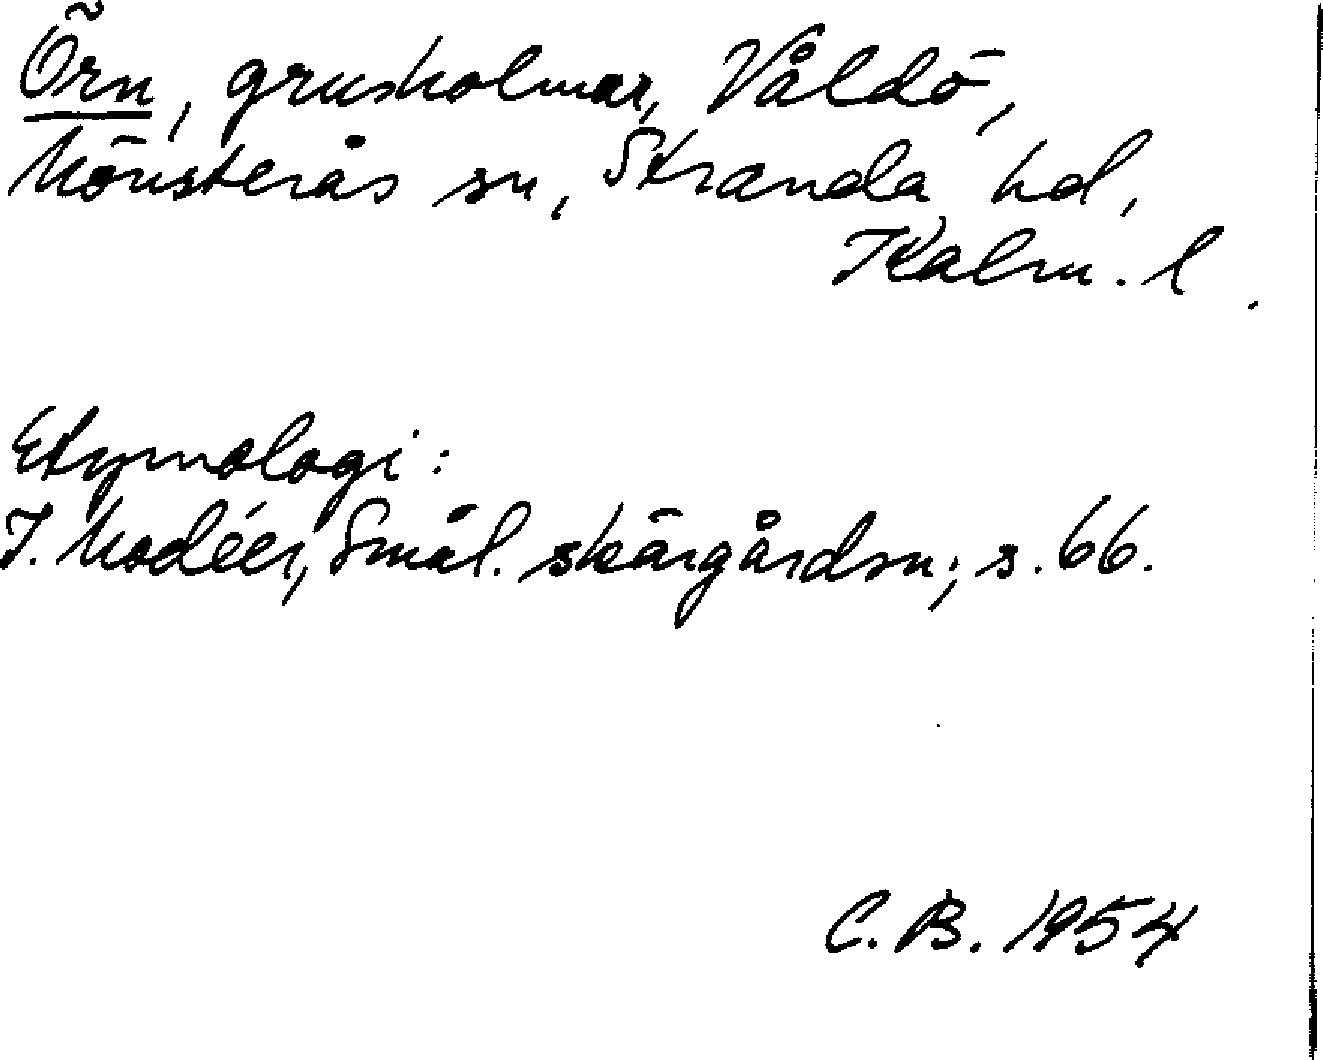 Örn, grusholmar, Våldö,
Mönsterås sn, Stranda hd,
Kalm. l.
Etymologi:
I. Modéer, Smål. skärgårdsn., s. 66.
C. B. 1954